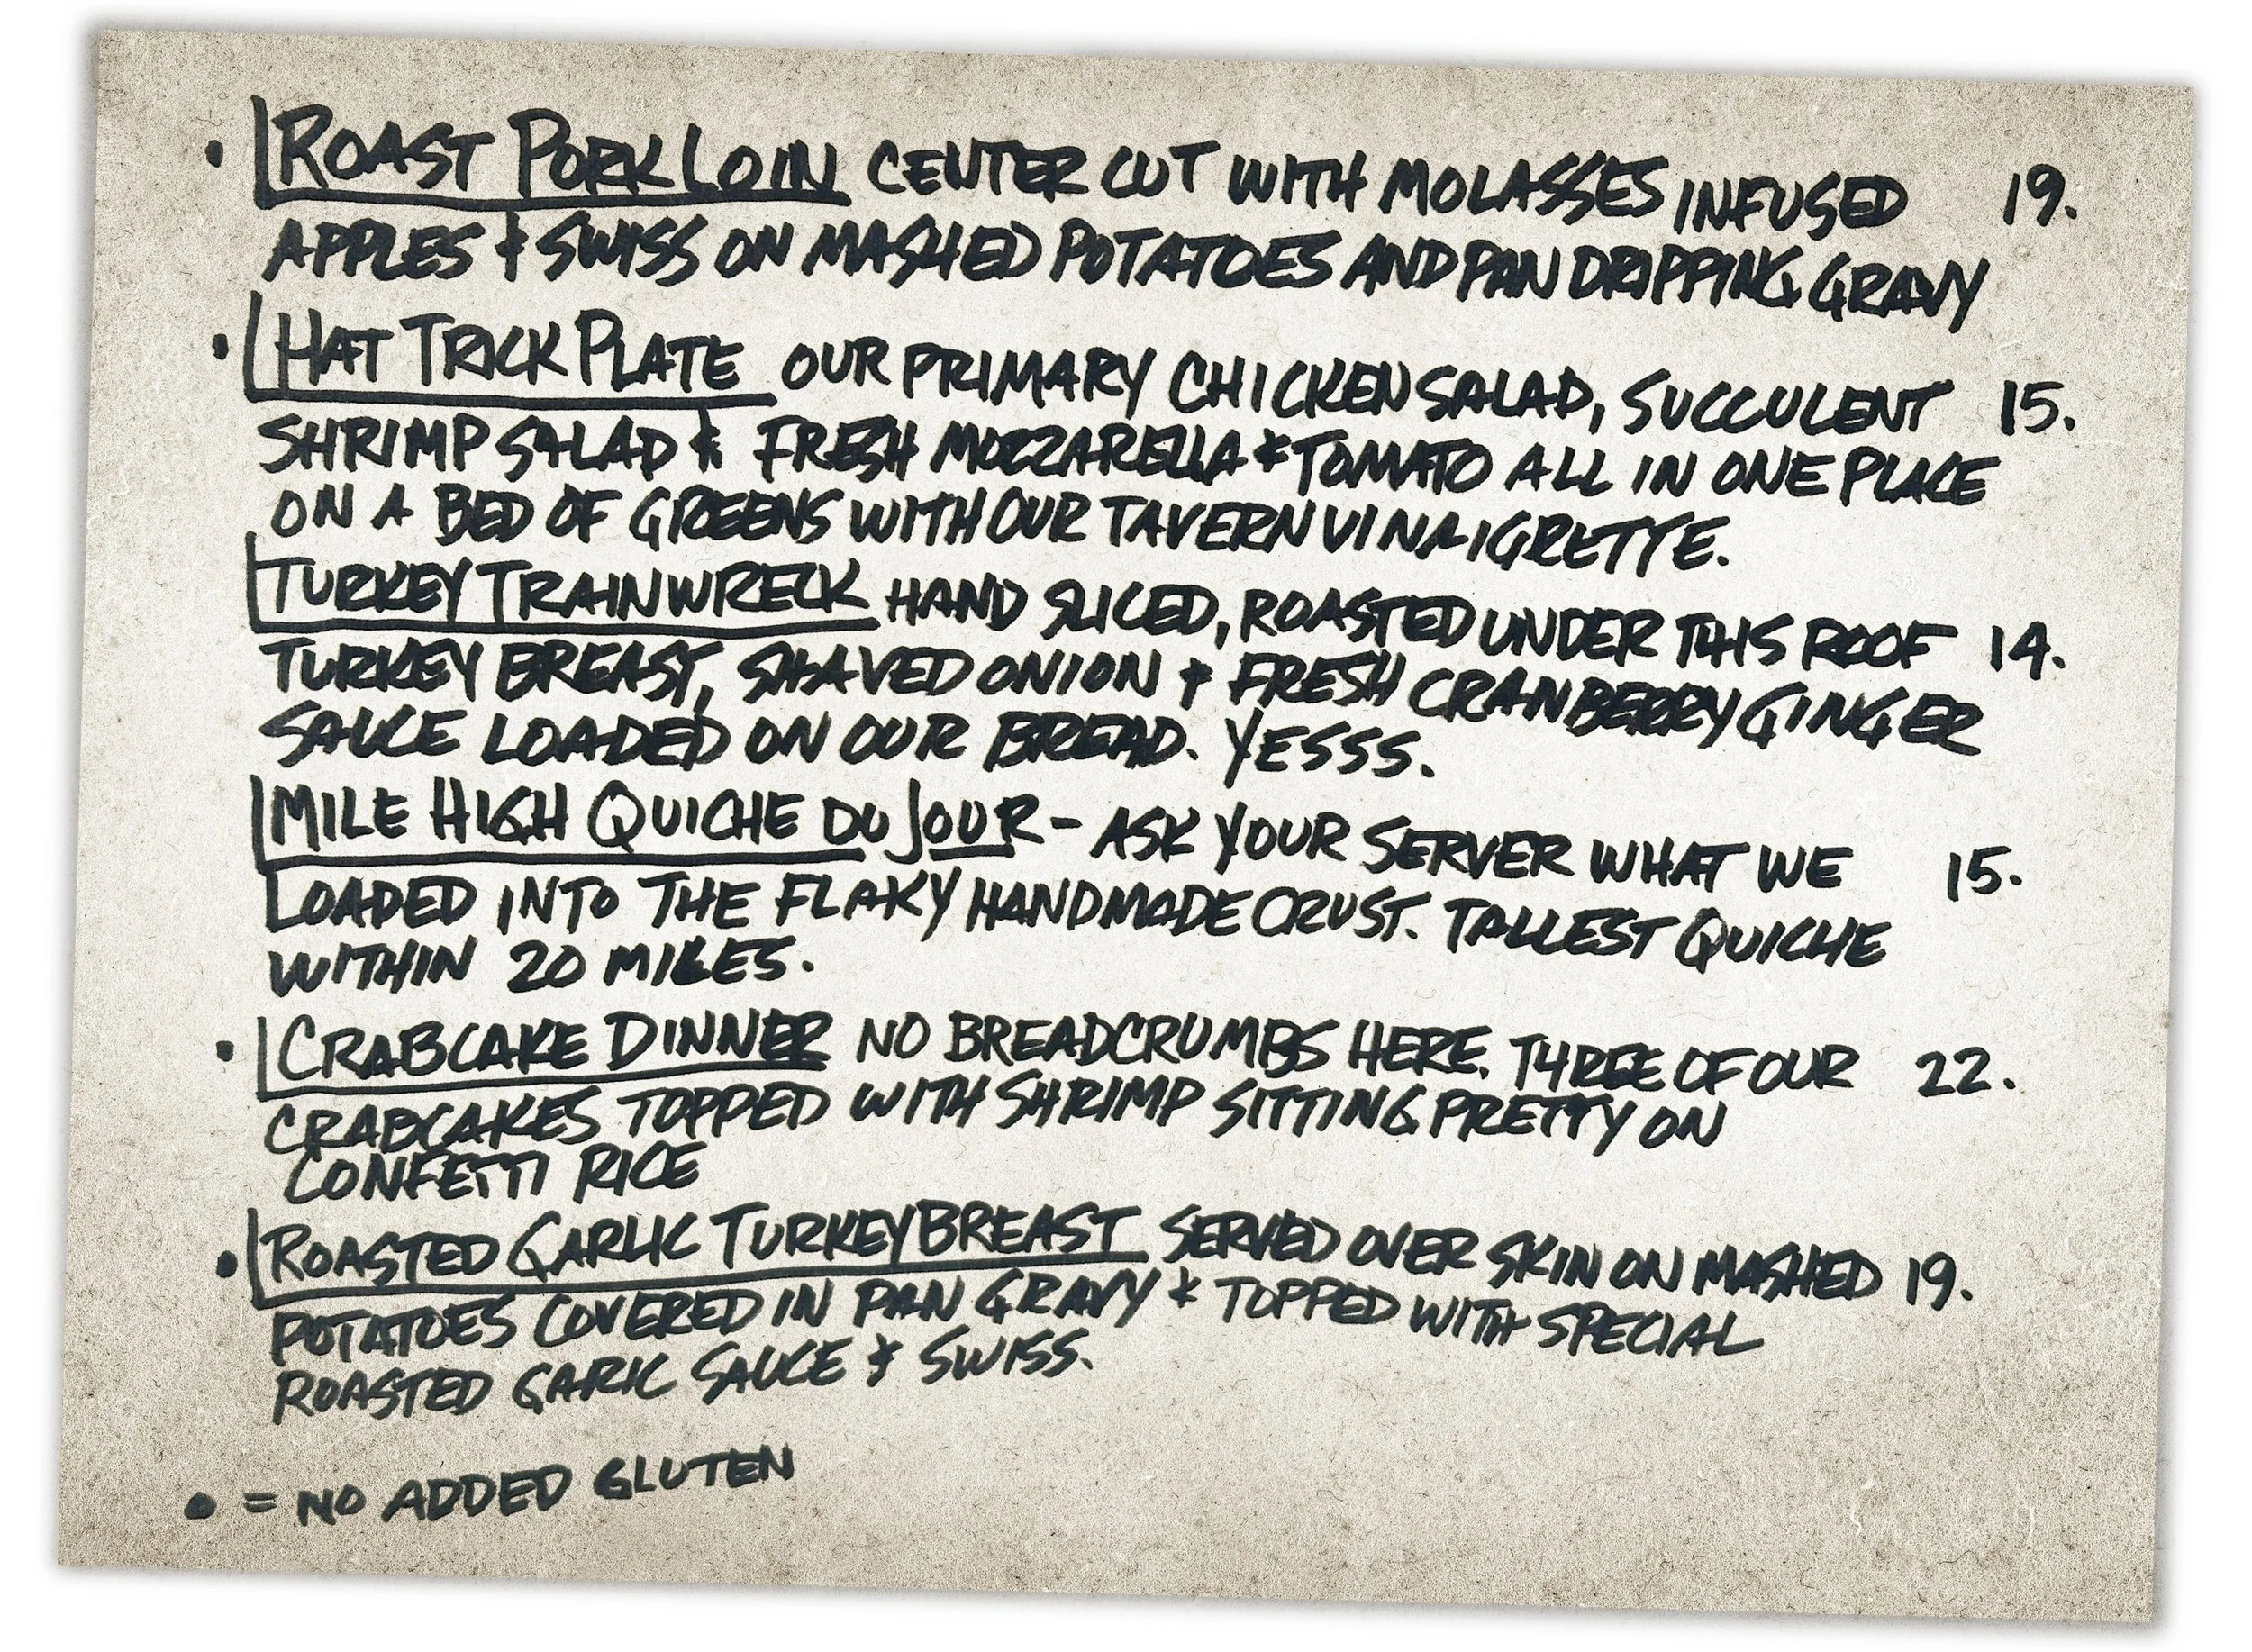 • ROAST PORK LOIN CENTER CUT WITH MOLASSES INFUSED 19.
APPLES & SWISS ON MASHED POTATOES AND PAN DRIPPING GRAVY
• HAT TRICK PLATE OUR PRIMARY CHICKEN SALAD, SUCCULENT 15.
SHRIMP SALAD & FRESH MOZZARELLA & TOMATO ALL IN ONE PLACE
ON A BED OF GREENS WITH OUR TAVERN VINAIGRETTE.
TURKEY TRAINWRECK HAND SLICED, ROASTED UNDER THIS ROOF 14.
TURKEY BREAST, SHAVED ONION & FRESH CRANBERRY GINGER
SAUCE LOADED ON OUR BREAD. YESSS.
MILE HIGH QUICHE DU JOUR - ASK YOUR SERVER WHAT WE 15.
LOADED INTO THE FLAKY HANDMADE CRUST. TALLEST QUICHE
WITHIN 20 MILES.
• CRABCAKE DINNER NO BREADCRUMBS HERE. THREE OF OUR 22.
CRABCAKES TOPPED WITH SHRIMP SITTING PRETTY ON
CONFETTI RICE
• ROASTED GARLIC TURKEY BREAST SERVED OVER SKIN ON MASHED 19.
POTATOES COVERED IN PAN GRAVY & TOPPED WITH SPECIAL
ROASTED GARIC SAUCE & SWISS.
• = NO ADDED GLUTEN